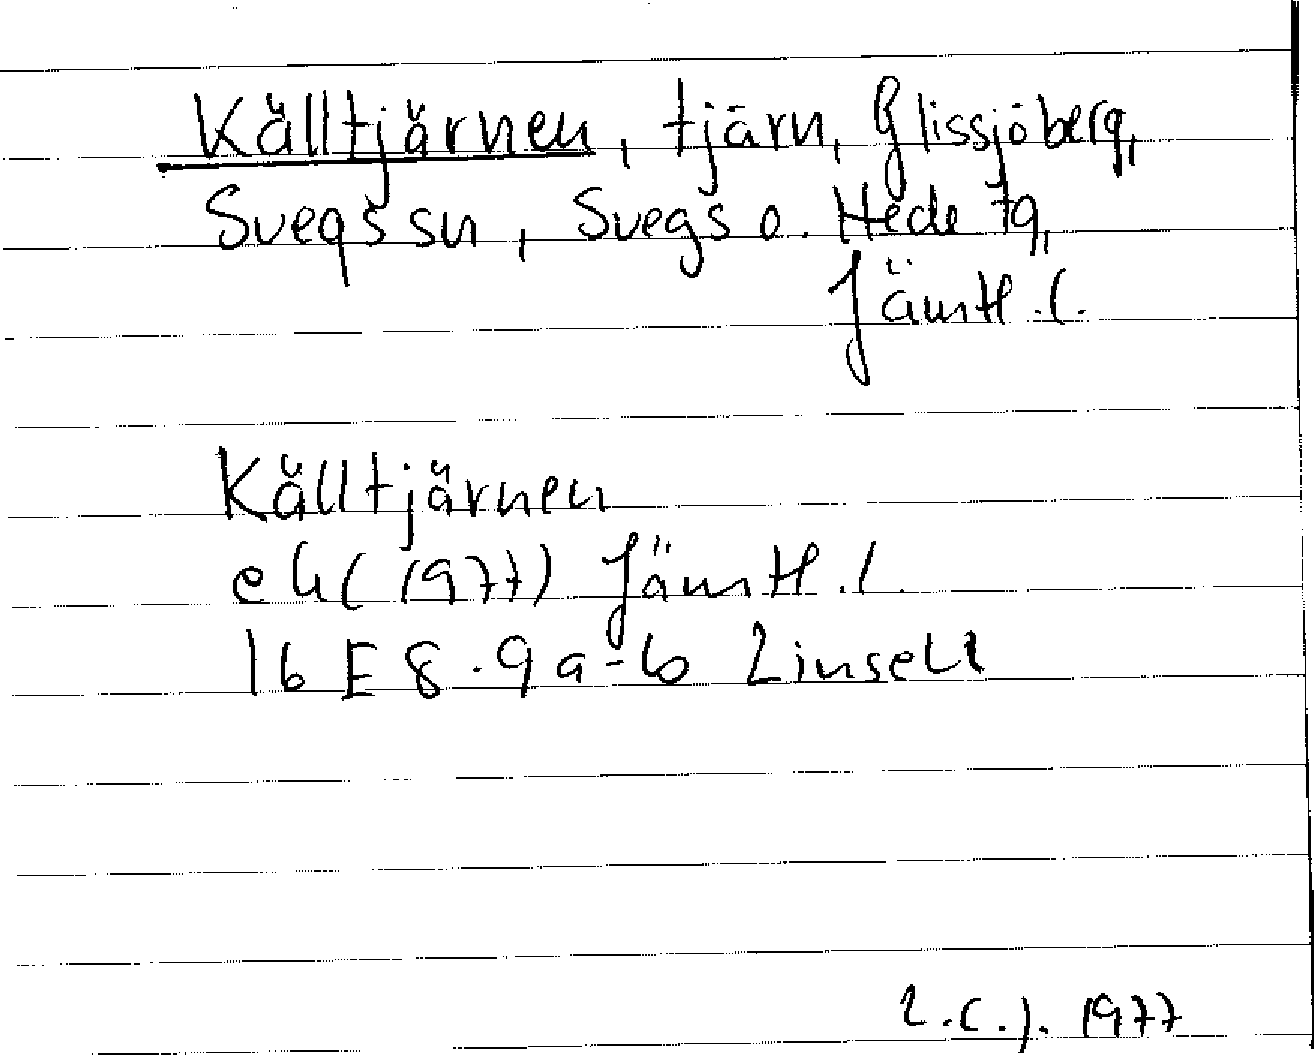 Källtjärnen, tjärn, Glissjöberg,
Svegs sn, Svegs o. Hede tg,
Jämtl.l.
Källtjärnen
ek (1977) Jämtl.l.
16 E 8-9 a-b Linsell
L.C.J. 1977